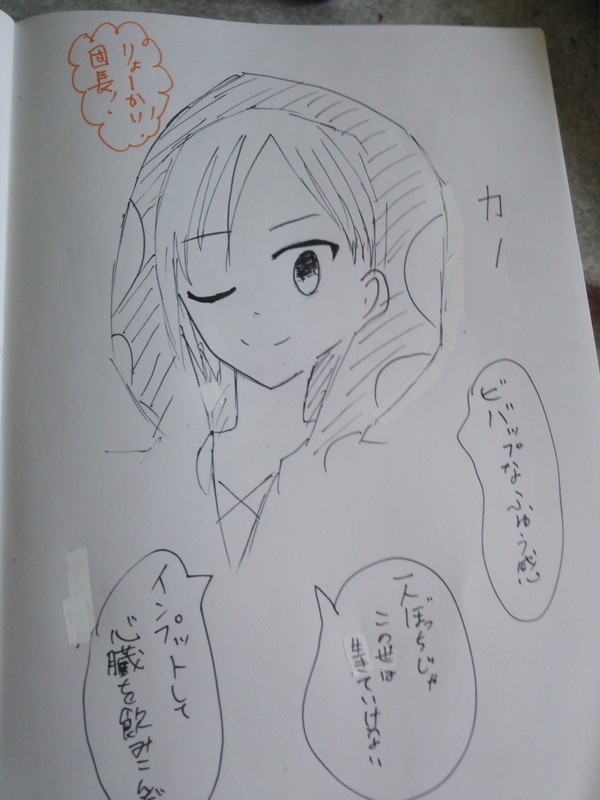 りょーかい!
団長!
カー
ビバップな ふゆう感
一人ぼっちじゃ
この世は
生きていけない
インプットして
心臓を飲みこんで